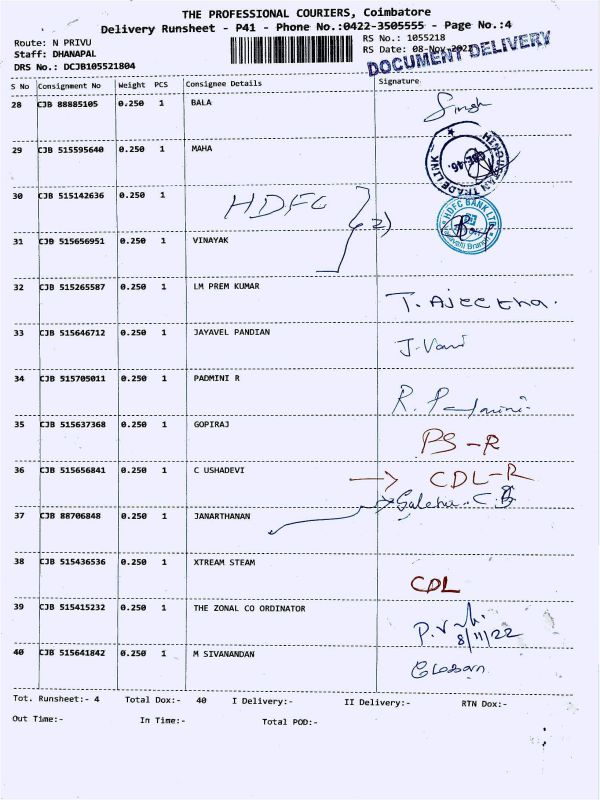 THE PROFESSIONAL COURIERS, Coimbatore
Delivery Runsheet - P41 - Phone No.:0422-3505555 - Page No.:4
Route: N PRIVU
RS No.: 1055218
Staff: DHANAPAL
RS Date: 08-Nov-2022
DRS No.: DCJB105521804
DOCUMENT DELIVERY
S No Consignment No Weight PCS Consignee Details Signature
28 CJB 88885105 0.250 1 BALA Singh
29 CJB 515595640 0.250 1 MAHA
HINDUSTAN TRADE LINK
CBE-46.
30 CJB 515142636 0.250 1 HDFC
HDFC BANK LTD
31 CJB 515656951 0.250 1 VINAYAK
32 CJB 515265587 0.250 1 LM PREM KUMAR T. Ajeetha.
33 CJB 515646712 0.250 1 JAYAVEL PANDIAN J. Vani
34 CJB 515705011 0.250 1 PADMINI R R. Padmini.
35 CJB 515637368 0.250 1 GOPIRAJ PS-R
36 CJB 515656841 0.250 1 C USHADEVI CDL-R
37 CJB 88706848 0.250 1 JANARTHANAN
38 CJB 515436536 0.250 1 XTREAM STEAM CDL
39 CJB 515415232 0.250 1 THE ZONAL CO ORDINATOR
8/11/22
40 CJB 515641842 0.250 1 M SIVANANDAN
Tot. Runsheet:- 4 Total Dox:- 40 I Delivery:- II Delivery:- RTN Dox:-
Out Time:- In Time:- Total POD:-